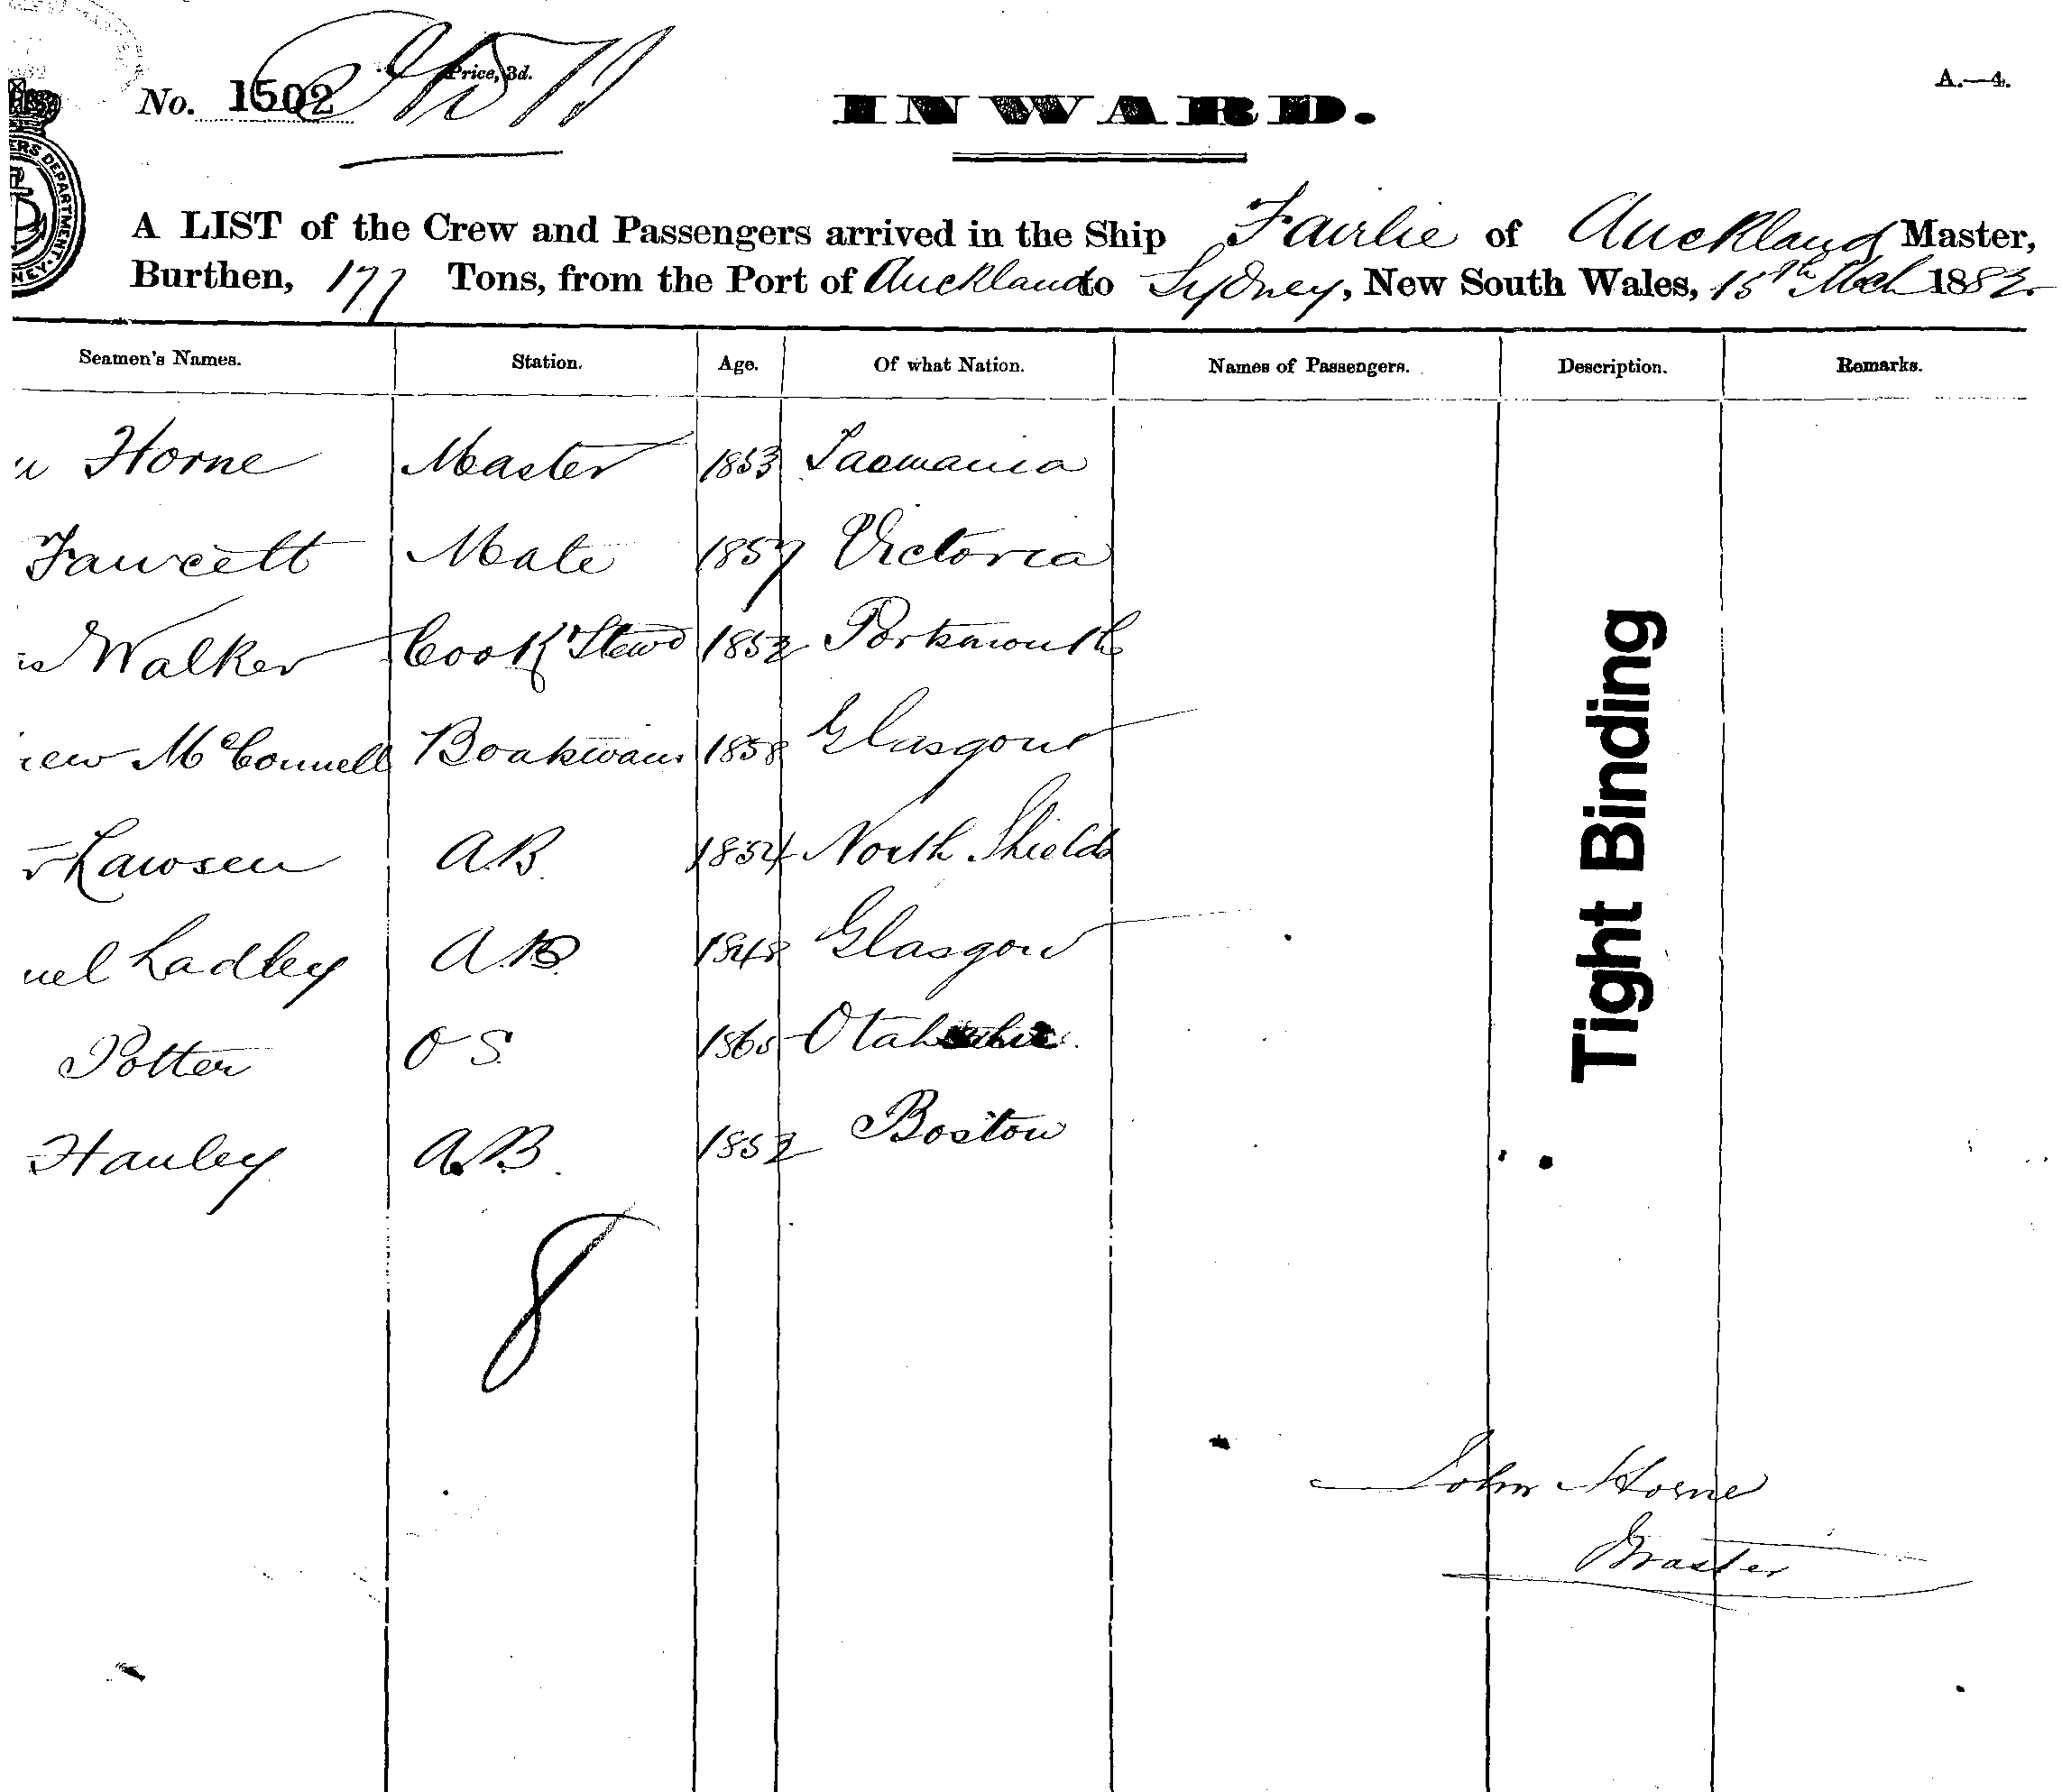 No. 1502
Price, 3d.
A.—4.
INWARD.
ERS DEPARTMENT
A LIST of the Crew and Passengers arrived in the Ship Fairlie of Auckland Master,
Burthen, 177 Tons, from the Port of Auckland to Sydney, New South Wales, 15th Mch 1882
Seamen's Names. Station. Age. Of what Nation. Names of Passengers. Description. Remarks.
Horne Master 1853 Tasmania
Fawcett Mate 1857 Victoria
Walker Cook & Stewd 1852 Portsmouth
rew McConnell Boatswain 1858 Glasgow
Lawsen A.B. 1854 North Shields
uel Ladley A.B. 1848 Glasgow
Potter O S. 1860
Hanley A.B. 1852 Boston
8
Tight Binding
John Horne
Master